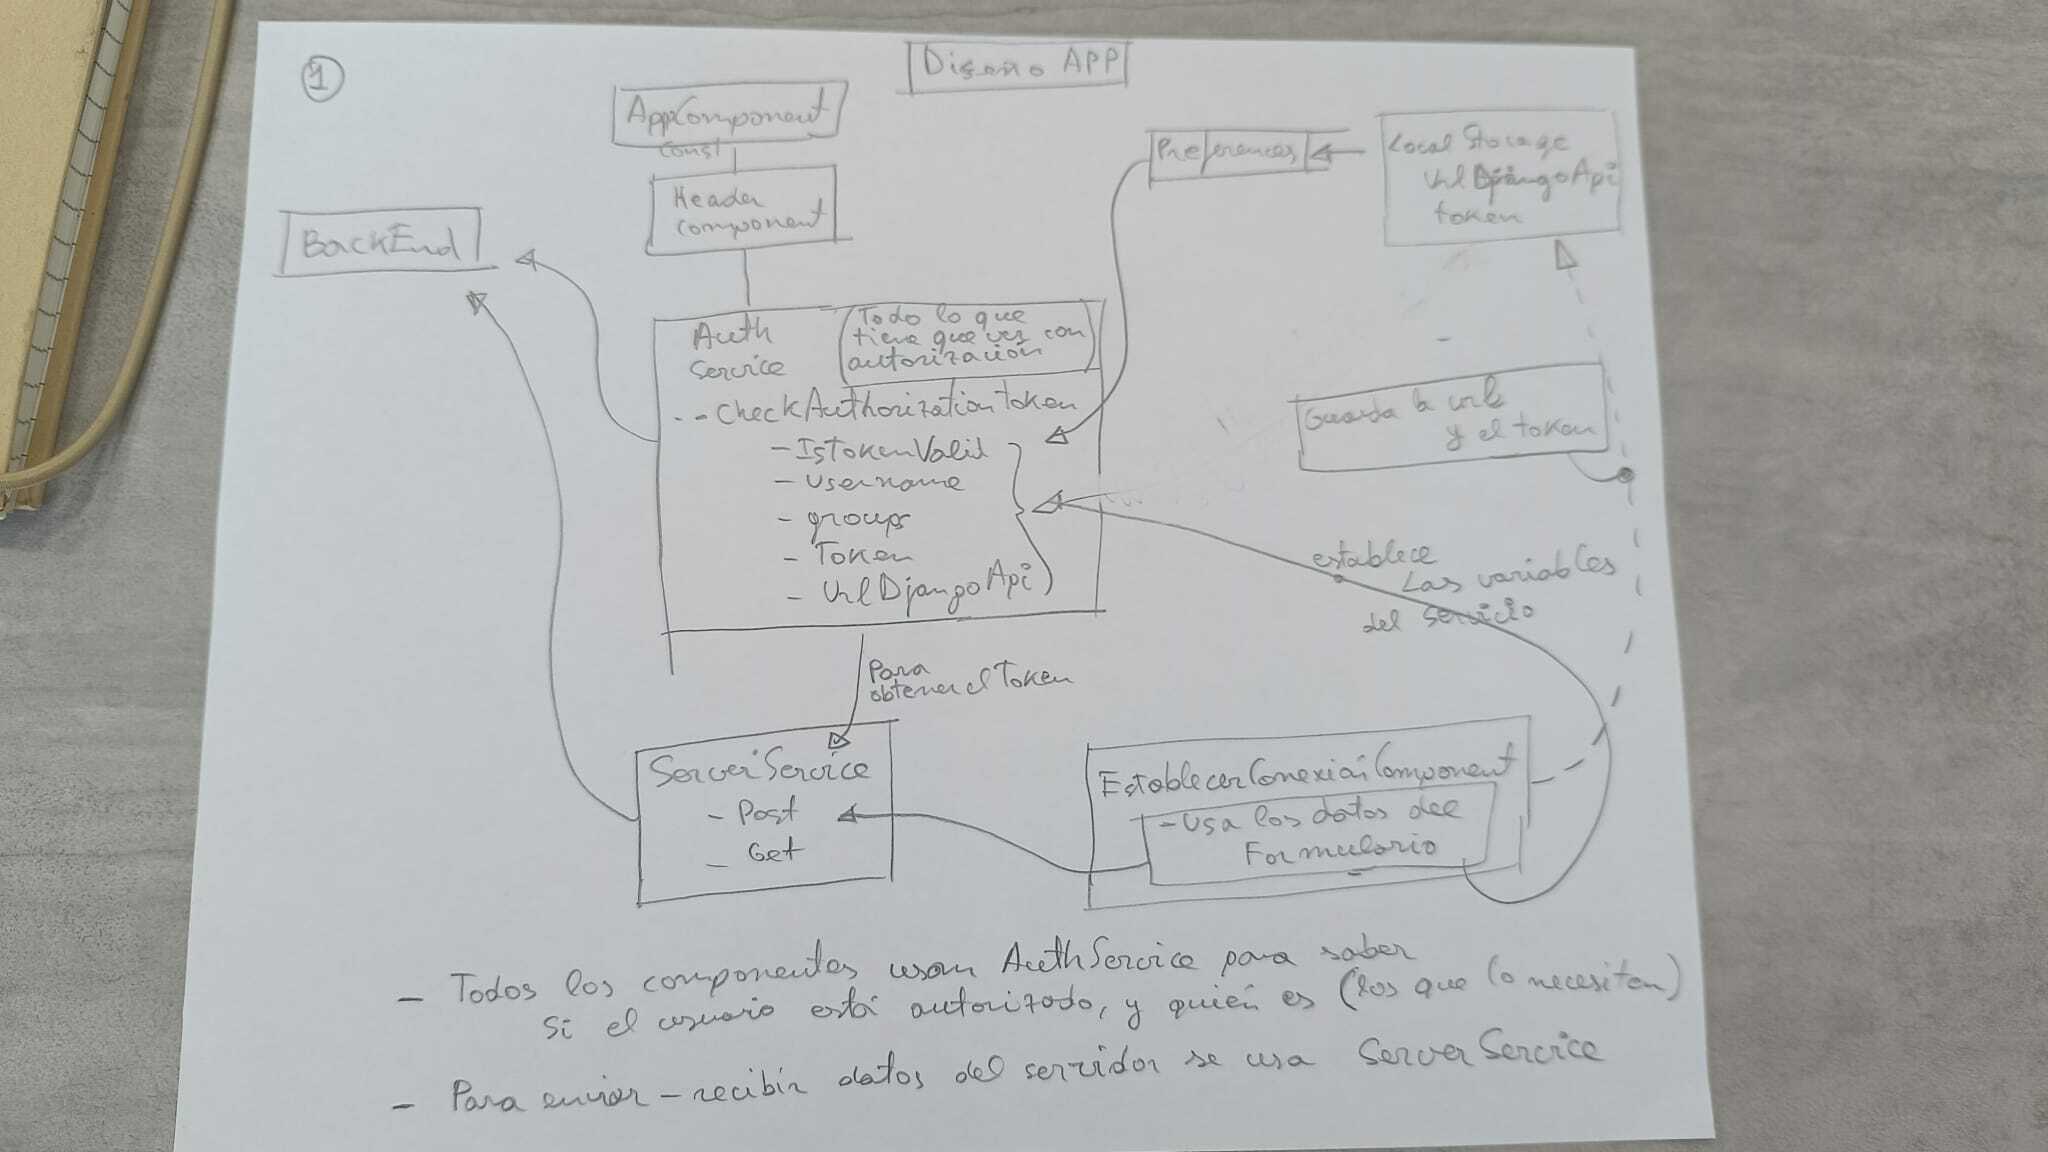 1
Diseño APP
AppComponent
const
Header
component
Preferences
Local Storage
UrlDjangoApi
token
BackEnd
Auth
Service
Todo lo que
tiene que ver con
autorización
-- CheckAuthorizationtoken
- IsTokenValid
- username
- groups
- Token
- UrlDjangoApi
Guarda la url
y el token
establece
Las variables
del servicio
Para
obtener el Token
ServerService
- Post
- Get
EstablecerConexiónComponent
- Usa los datos del
Formulario
- Todos los componentes usan AuthService para saber
si el usuario está autorizado, y quién es (los que lo necesiten)
- Para enviar - recibir datos del servidor se usa ServerService